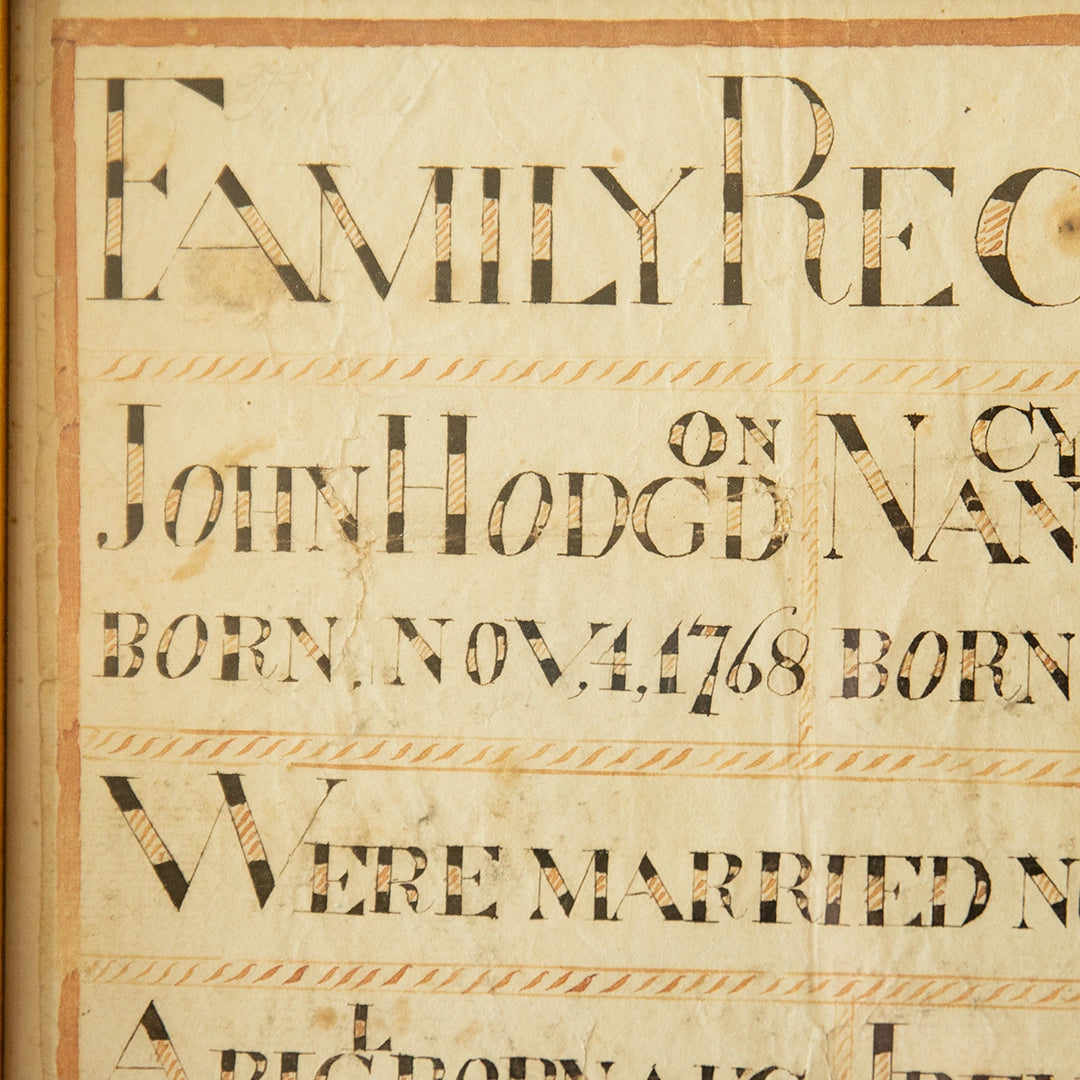 FAMILY REC
JOHN HODGDON NANCY
BORN. NOV, 4, 1768 BORN
WERE MARRIED N